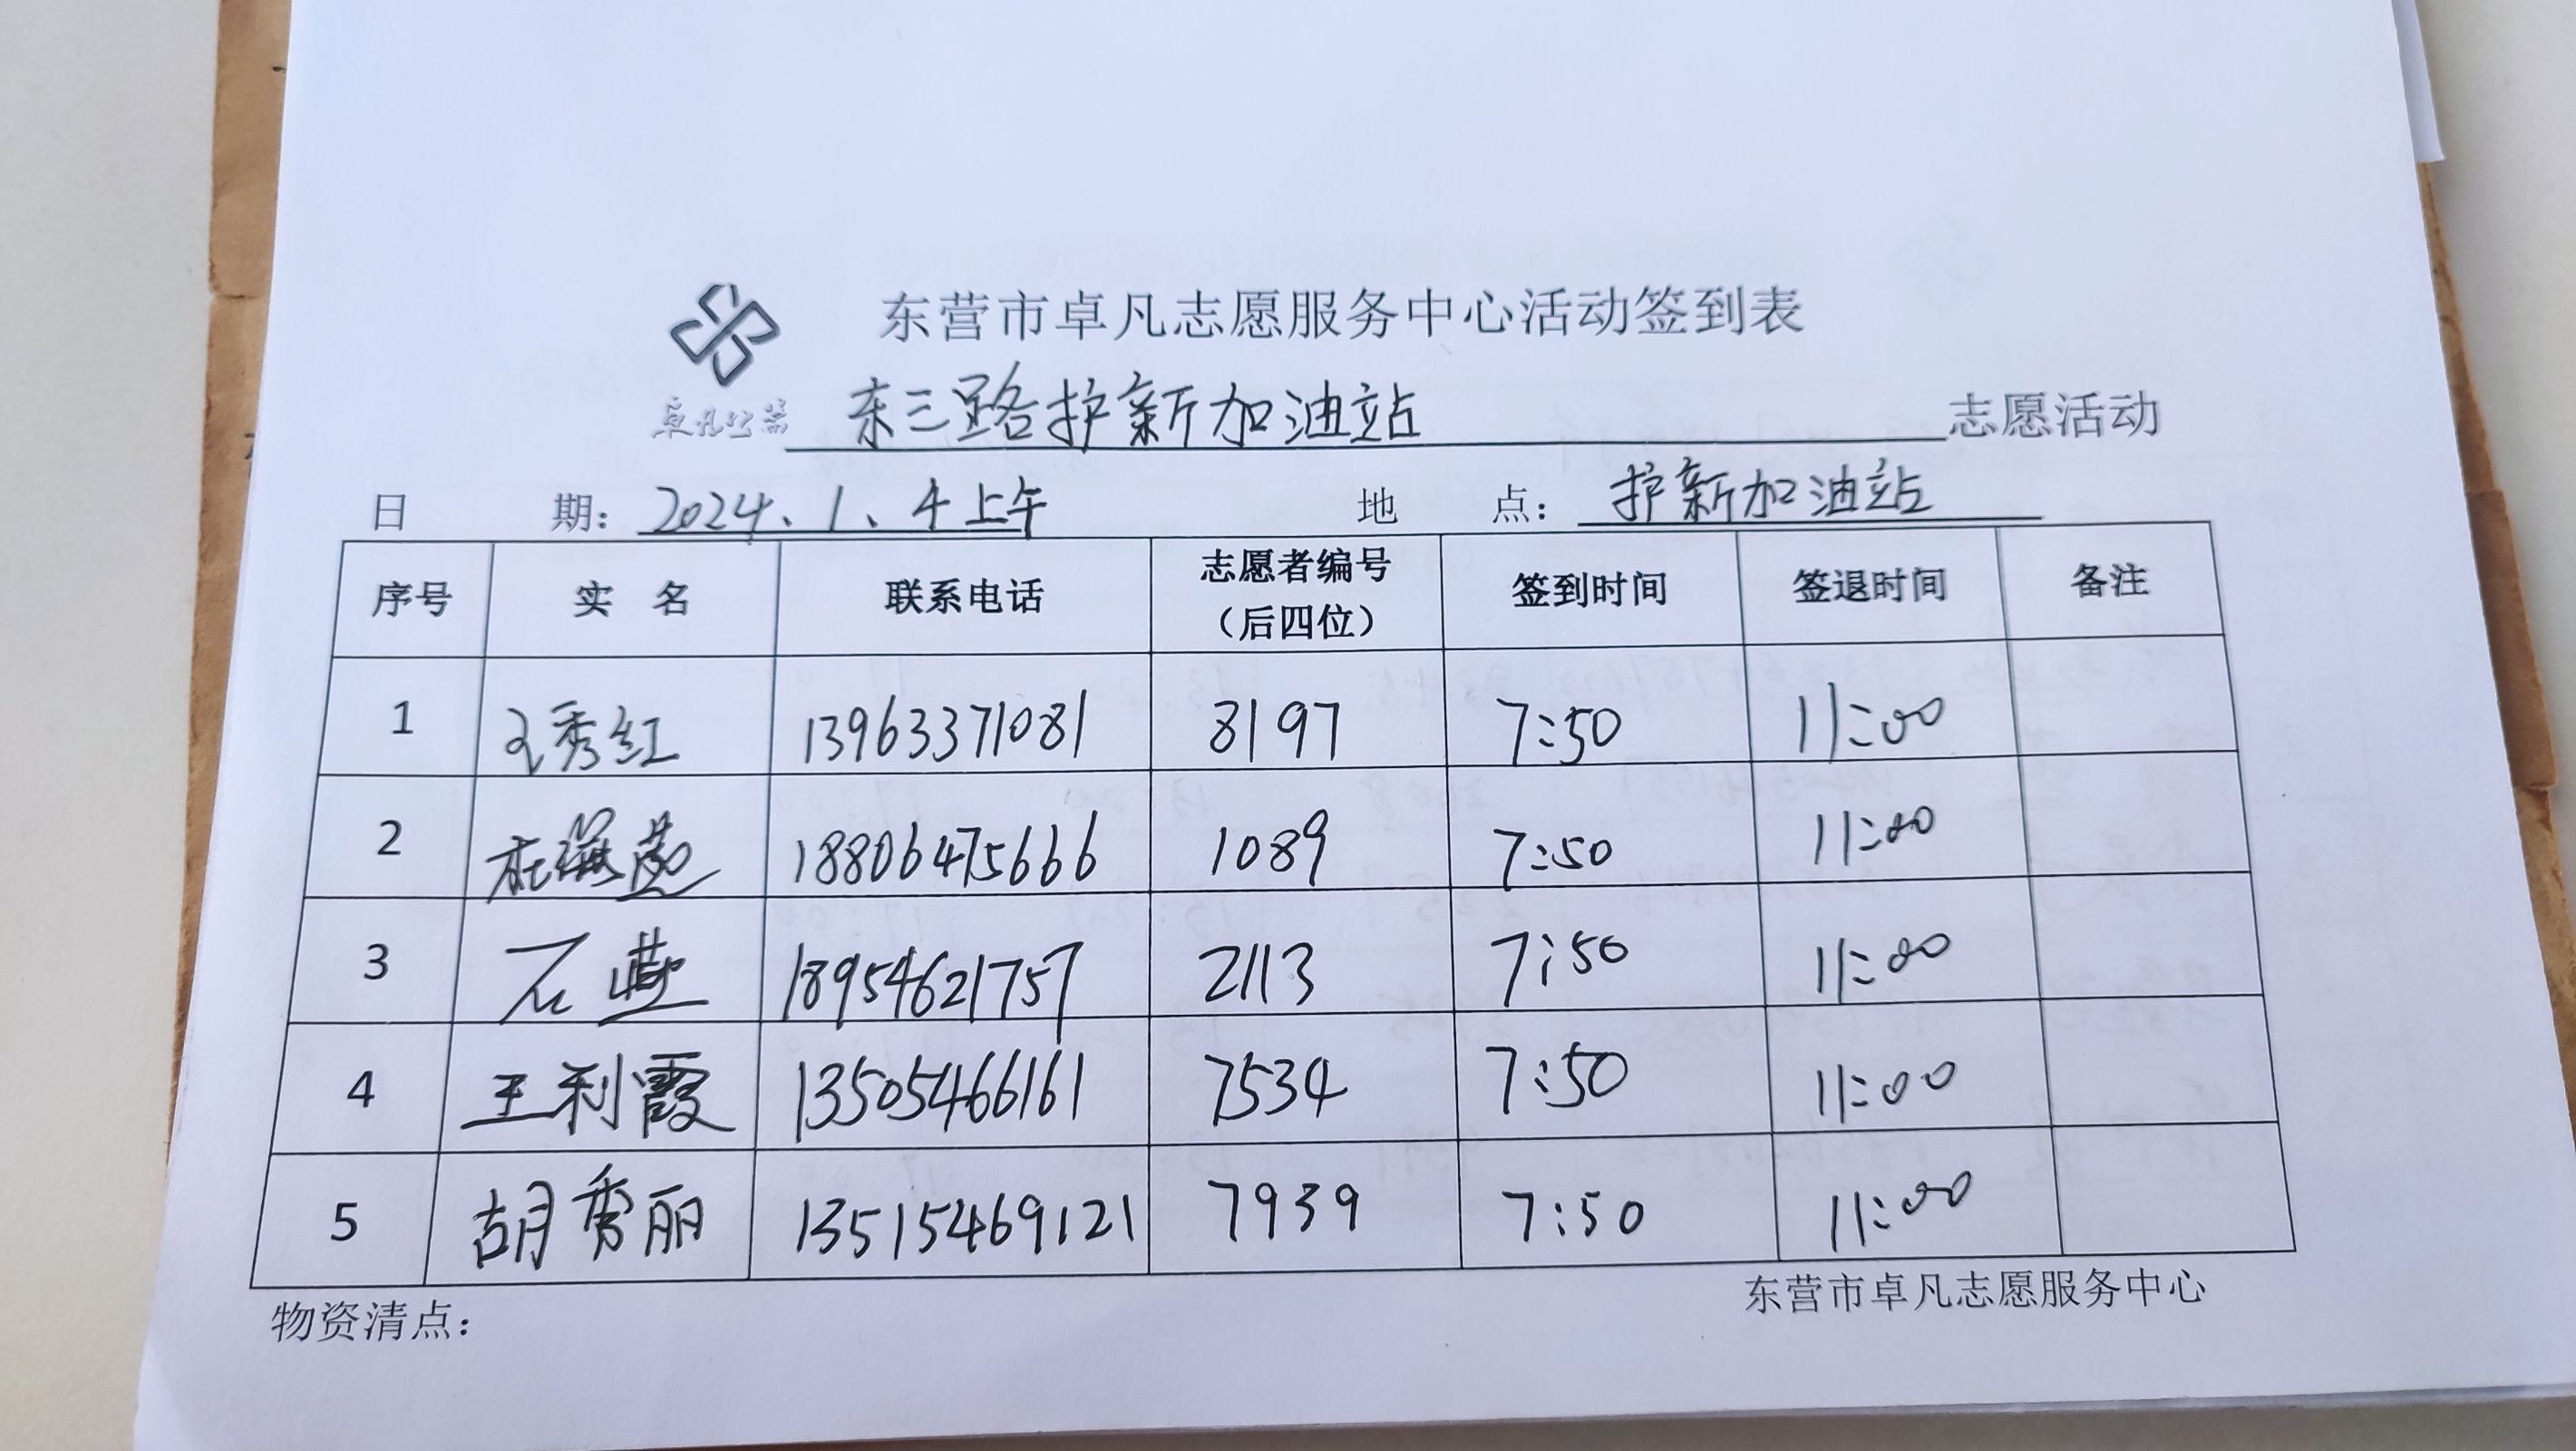 东营市卓凡志愿服务中心活动签到表
卓凡公益 东三路护新加油站 志愿活动
日 期：2024、1、4上午 地 点：护新加油站
序号 实 名 联系电话 志愿者编号（后四位） 签到时间 签退时间 备注
1 王秀红 13963371081 8197 7:50 11:00
2 杜海燕 18806475666 1089 7:50 11:00
3 石燕 18954621757 2113 7:50 11:00
4 王利霞 13505466161 7534 7:50 11:00
5 胡秀丽 13515469121 7939 7:50 11:00
物资清点： 东营市卓凡志愿服务中心